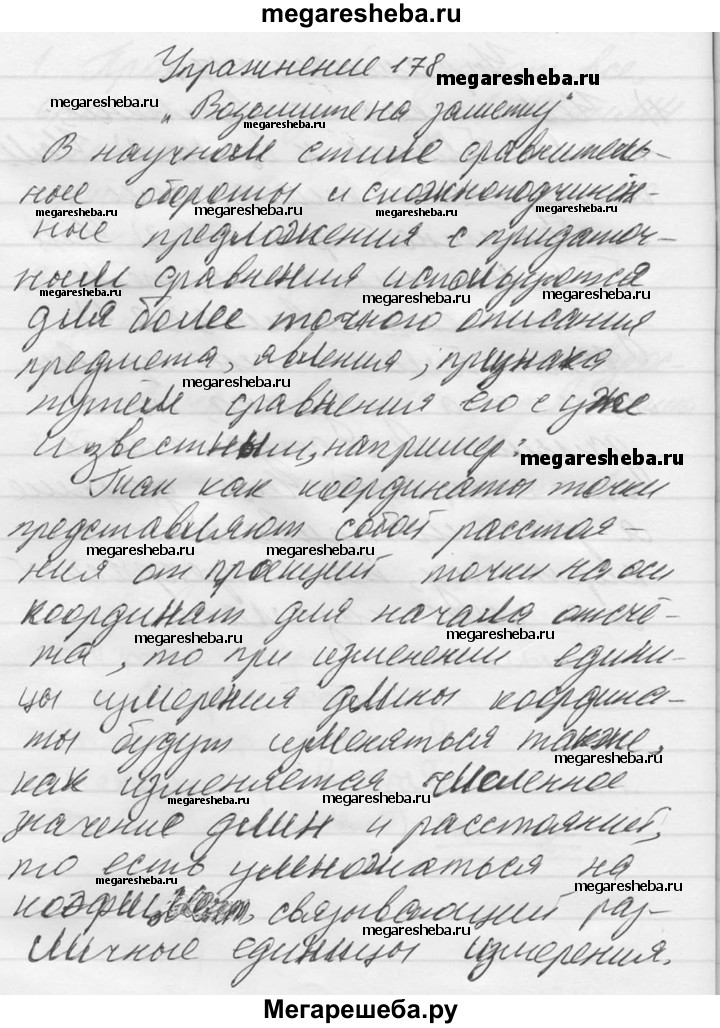 megaresheba.ru
Упражнение 178
megaresheba.ru
megaresheba.ru
„Возьмите на заметку"
megaresheba.ru
В научном стиле сравнитель-
megaresheba.ru
ные обороты и сложноподчинён-
megaresheba.ru megaresheba.ru megaresheba.ru
ные предложения с придаточ-
ным сравнения используются
megaresheba.ru megaresheba.ru megaresheba.ru
для более точного описания
предмета, явления, признака
megaresheba.ru megaresheba.ru
путём сравнения его с уже
известным, например:
megaresheba.ru
Так как координаты точки
megaresheba.ru
представляют собой расстоя-
megaresheba.ru megaresheba.ru
ния от проекций точки на оси
координат для начала отсчё-
megaresheba.ru megaresheba.ru
та, то при изменении едини-
цы измерения длины координа-
ты будут изменяться также,
megaresheba.ru
как изменяется численное
megaresheba.ru megaresheba.ru
значение длин и расстояний,
то есть умножаться на
megaresheba.ru megaresheba.ru
связывающий раз-
megaresheba.ru
личные единицы измерения.
Мегарешеба.ру